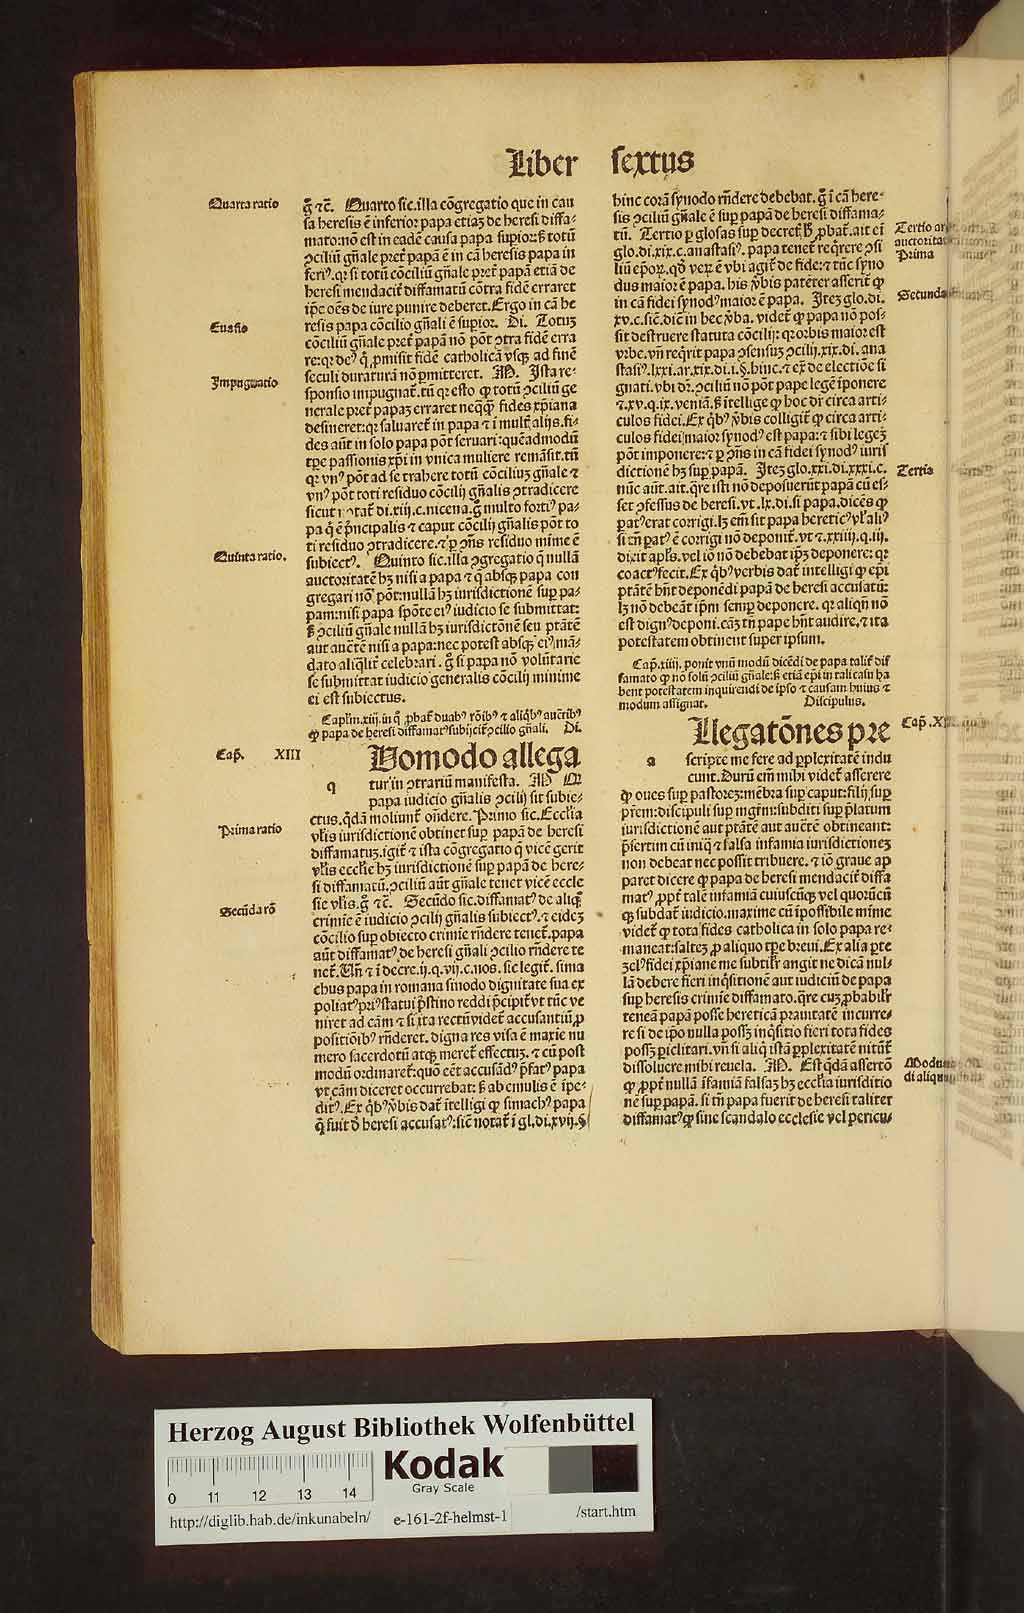 Liber sextus
Quarta ratio
g̃ ⁊c̃. Quarto sic. illa cõgregatio que in cau
sa heresis ẽ inferior papa etiaʒ de heresi diffa-
mato: nõ est in eadẽ causa papa supior: sꝫ totũ
ꝯciliũ gñale pret̃ papã ẽ in cã heresis papa in
feriꝰ. qꝛ si totũ cõciliũ gñale pret̃ papã etiã de
heresi mendacit̃ diffamatũ cõtra fidẽ erraret
ip̃e oẽs de iure punire deberet. Ergo in cã he
Euasio
resis papa cõcilio gñali ẽ supior. Di. Totuʒ
cõciliũ gñale pret̃ papã nõ põt ꝯtra fidẽ erra
re: qꝛ deꝰ q̇ ꝓmisit fidẽ catholicã vsqꝫ ad finẽ
Impugnatio
seculi duraturã nõ ꝑmitteret. M. Ista re-
sponsio impugnat̃. tũ qꝛ esto ꝙ totũ ꝯciliũ ge
nerale pret̃ papaʒ erraret neq̃ꝙ fides xp̃iana
desineret: qꝛ saluaret̃ in papa ⁊ ĩ mult̃ alijs. fi-
des aũt in solo papa põt seruari: quẽadmodũ
tꝑe passionis xp̃i in vnica muliere remãsit. tũ
qꝛ vnꝰ põt ad se trahere totũ cõciliuʒ gñale ⁊
vnꝰ põt toti residuo cõcilij gñalis ꝯtradicere
sicut notat̃ di. xiij. c. nicena. g̃ multo fortiꝰ pa-
pa q̇ ẽ p̃ncipalis ⁊ caput cõcilij gñalis põt to
ti residuo ꝯtradicere. ⁊ ꝑ ꝯñs residuo mĩe ẽ
Quinta ratio.
subiectꝰ. Quinto sic. illa ꝯgregatio q̃ nullã
auctoritatẽ hꝫ nisi a papa ⁊ q̃ absqꝫ papa con
gregari nõ põt: nullã hꝫ iurisdictionẽ sup pa-
pam: nisi papa spõte eiꝰ iudicio se submittat:
sꝫ ꝯciliũ gñale nullã hꝫ iurisdictõnẽ seu ptãtẽ
aut auc̃tẽ nisi a papa: nec potest absqꝫ eiꝰ mã-
dato aliql̃it̃ celebrari. g̃ si papa nõ volũtarie
se submittat iudicio generalis cõcilij minime
ei est subiectus.
Capl̃m. xiij. in q̇ ꝓbat̃ duabꝰ rõibꝰ ⁊ aliq̇bꝰ auc̃tibꝰ
ꝙ papa de heresi diffamatꝰ subijcit̃ ꝯcilio gñali. Di.
Cap̃. XIII
q Uomodo allega
tur in ꝯtrariũ manifesta. M. Qꝛ
papa iudicio gñalis ꝯcilij sit subie-
ctus. q̇dã moliunt̃ oñdere. Primo sic. Ecclia
Prima ratio
vl̃is iurisdictionẽ obtinet sup papã de heresi
diffamatuʒ. igit̃ ⁊ ista cõgregatio q̃ vicẽ gerit
vl̃is eccl̃ie hꝫ iurisdictionẽ sup papã de here-
si diffamatũ. ꝯciliũ aũt gñale tenet vicẽ eccle
sie vl̃is. g̃ ⁊c̃. Secũdo sic. diffamatꝰ de aliq̇
Secũda rõ
crimĩe ẽ iudicio ꝯcilij gñalis subiectꝰ. ⁊ eideʒ
cõcilio sup obiecto crimĩe rñdere tenet̃. papa
aũt diffamatꝰ de heresi gñali ꝯcilio rñdere te
net̃. Vñ ⁊ ĩ decre. ij. q. vij. c. nos. sic legit̃. sima
chus papa in romana sinodo dignitate sua ex
poliatꝰ priꝰ statui p̃stino reddi p̃cipit̃ vt tũc ve
niret ad cãm ⁊ si ita rectũ videt̃ accusantiũ ꝓ
positiõibꝰ rñderet. digna res visa ẽ maxie nu
mero sacerdotũ atqꝫ meret̃ effectuʒ. ⁊ cũ post
modũ ordinaret̃: quo eẽt accusãdꝰ p̃fatꝰ papa
vt cãm diceret occurrebat: sꝫ ab emulis ẽ ĩpe-
ditꝰ. Ex q̇bꝰ v̓bis dat̃ ĩtelligi ꝙ simachꝰ papa
q̇ fuit d̓ heresi accusatꝰ: sic̃ notat̃ ĩ gl. di. xvij. §
hinc corã synodo rñdere debebat. g̃ ĩ cã here-
sis ꝯciliũ gñale ẽ sup papã de heresi diffama-
tũ. Tertio ꝑ glosas sup decret̃ hꝫ ꝓbat̃. ait ei
glo. di. xix. c. anastasiꝰ. papa tenet̃ req̇rere ꝯsi
Prima
liũ epõꝝ. qd̓ veꝝ ẽ vbi agit̃ de fide: ⁊ tũc syno
dus maior ẽ papa. his v̓bis patẽter asserit̃ ꝙ
in cã fidei synodꝰ maior ẽ papa. Iteʒ glo. di.
Secunda
xv. c. sic̃. dic̃ in hec v̓ba. videt̃ ꝙ papa nõ pos-
sit destruere statuta cõcilij: qꝛ orbis maior est
vrbe. vñ req̇rit papa ꝯsensuʒ ꝯcilij. xix. di. ana
stasiꝰ. lxxi. ar. xix. di. i. §. hinc. ⁊ ex̃ de electiõe si
gnati. vbi dr̃. ꝯciliũ nõ põt pape legẽ ĩponere
⁊. xv. q. ix. veniã. sꝫ ĩtellige ꝙ hoc dr̃ circa arti-
culos fidei. Ex q̇bꝰ v̓bis colligit̃ ꝙ circa arti-
culos fidei maior synodꝰ est papa: ⁊ sibi legeʒ
põt imponere: ⁊ ꝑ ꝯñs in cã fidei synodꝰ iuris
Tertia
dictionẽ hꝫ sup papã. Iteʒ glo. xxi. di. xxxi. c.
nũc aũt. ait. q̃re isti nõ deposuerũt papã cũ es-
set ꝯfessus de heresi. vt. lx. di. si papa. dicẽs ꝙ
patꝰ erat corrigi. lꝫ em̃ sit papa hereticꝰ vl̓ aliꝰ
si tñ patꝰ ẽ corrigi nõ deponit̃. vt ⁊. xxiiij. q. iij.
dixit apl̃s. vel iõ nõ debebãt ip̃ʒ deponere: qꝛ
coactꝰ fecit. Ex q̇bꝰ verbis dat̃ intelligi ꝙ ep̃i
ptãtẽ hñt deponẽdi papã de heresi accusatũ:
lꝫ nõ debeãt ip̃m semꝑ deponere. qꝛ aliqñ nõ
est dignꝰ deponi. cãʒ tñ pape hñt audire. ⁊ ita
potestatem obtinent super ipsum.
Cap̃. xiiij. ponit vnũ modũ dicẽdi de papa talit̃ dif
famato ꝙ nõ solũ ꝯciliũ gñale: sꝫ etiã ep̃i in tali casu ha
bent potestatem inquirendi de ipso ⁊ causam huius ⁊
modum assignat. Discipulus.
a Llegatõnes pre
scripte me fere ad ꝑplexitatẽ indu
cunt. Durũ em̃ mihi videt̃ asserere
ꝙ oues sup pastoreʒ: mẽbra sup caput: filij sup
pr̃em: discipuli sup mgr̃m: subditi sup p̃latum
iurisdictionẽ aut ptãtẽ aut auc̃tẽ obtineant:
p̃sertim cũ iniq̃ ⁊ falsa infamia iurisdictioneʒ
non debeat nec possit tribuere. ⁊ iõ graue ap
paret dicere ꝙ papa de heresi mendacit̃ diffa
matꝰ ꝓpt̃ talẽ infamiã cuiuscũqꝫ vel quorũcũ
qꝫ subdat̃ iudicio. maxime cũ ĩpossibile mĩme
videt̃ ꝙ tota fides catholica in solo papa re-
maneat: salteʒ ꝓ aliquo tꝑe breui. Ex alia ꝑte
ʒelꝰ fidei xp̃iane me subtilr̃ angit ne dicã nul-
lã debere fieri inq̇sitionẽ aut iudiciũ de papa
sup heresis crimĩe diffamato. q̃re cuʒ ꝓbabilr̃
teneã papã posse hereticã prauitatẽ incurre-
re si de ip̃o nulla possʒ inq̇sitio fieri tota fides
possʒ ꝑiclitari. vñ si aliq̇ istã ꝑplexitatẽ nitũt̃
dissoluere mihi reuela. M. Est q̇dã assertõ
ꝙ ꝓpt̃ nullã ĩfamiã falsaʒ hꝫ eccl̃ia iurisditio
nẽ sup papã. si tñ papa fuerit de heresi taliter
diffamatꝰ ꝙ sine scandalo ecclesie vel pericu-
Herzog August Bibliothek Wolfenbüttel
Kodak
Gray Scale
0 11 12 13 14
http://diglib.hab.de/inkunabeln/ e-161-2f-helmst-1 /start.htm